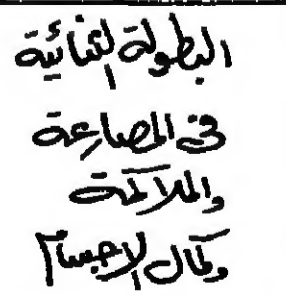 البطولة الثنائية
فى المصارعة
والملاكمة
وكمال الاجسام